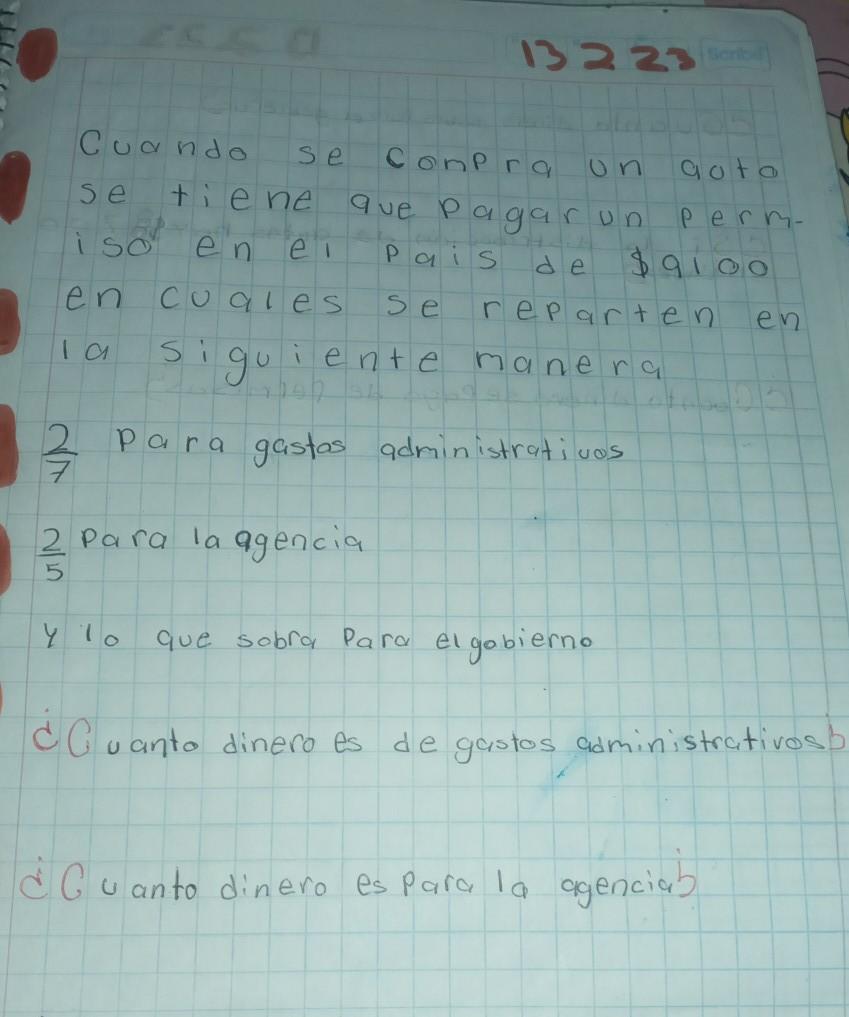 13 2 23
Scribe
Cuando se conpra un auto
se tiene que pagar un perm-
iso en el pais de $9100
en cuales se reparten en
la siguiente manera
2/7 para gastos administrativos
2/5 para la agencia
y lo que sobra para el gobierno
¿Cuanto dinero es de gastos administrativos?
¿Cuanto dinero es para la agencia?